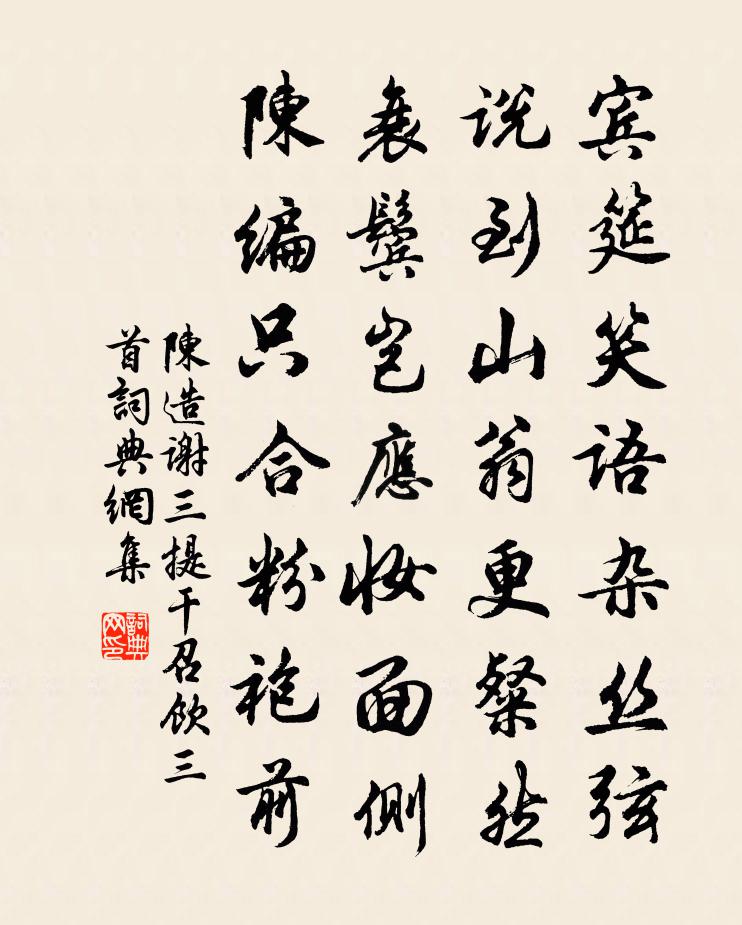 宾筵笑语杂丝弦
说到山翁更粲然
衰鬓岂应妆面侧
陳编只合粉袍前
陳造谢三提干召飲三
首詞典網集
詞典网印